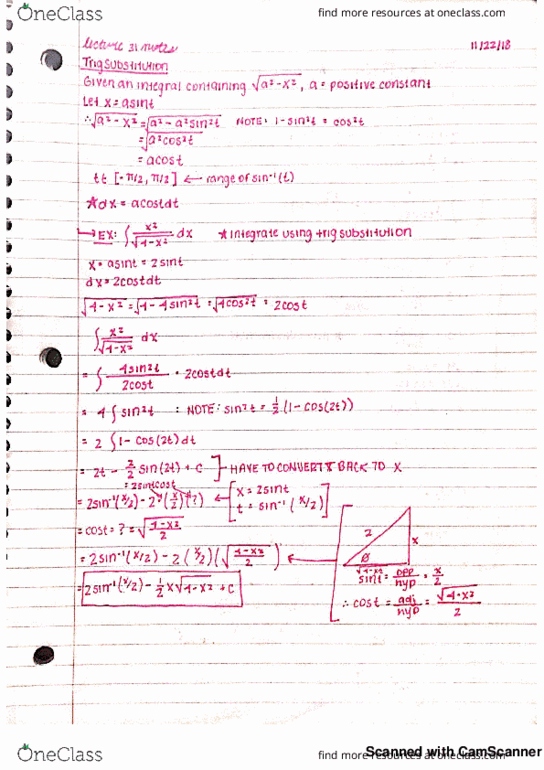 OneClass
find more resources at oneclass.com
lecture 31 notes
11/22/18
Trig Substitution
Given an integral containing √(a²-x²), a = positive constant
Let x = asint
∴ √(a²-x²) = √(a²-a²sin²t) NOTE: 1-sin²t = cos²t
= √(a²cos²t)
= acost
t∈ [-π/2, π/2] ← range of sin⁻¹(t)
*dx = acostdt
→ EX: ∫ x²/√(4-x²) dx * integrate using trig substitution
x = asint = 2sint
dx = 2costdt
√(4-x²) = √(4-4sin²t) = √(4cos²t) = 2cost
∫ x²/√(4-x²) dx
= ∫ 4sin²t/2cost · 2costdt
= 4 ∫ sin²t : NOTE: sin²t = ½(1-cos(2t))
= 2 ∫ 1-cos(2t)dt
= 2t - 2/2 sin(2t) + C ] HAVE TO CONVERT BACK TO X
= 2sintcost
= 2sin⁻¹(x/2) - 2(x/2)(?) ← [x = 2sint
t = sin⁻¹(x/2)]
= cost = ? = √(4-x²)/2
= 2sin⁻¹(x/2) - 2(x/2)(√(4-x²)/2) ←
= 2sin⁻¹(x/2) - ½x√(4-x²) + C
2
x
θ
√(4-x²)
sint = opp/hyp = x/2
∴ cost = adj/hyp = √(4-x²)/2
OneClass
find more resources at oneclass.com
Scanned with CamScanner